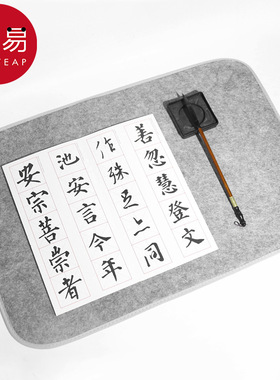 易
YEAP
善忽慧登文
作殊足上同
池安言今年
安宗善崇者